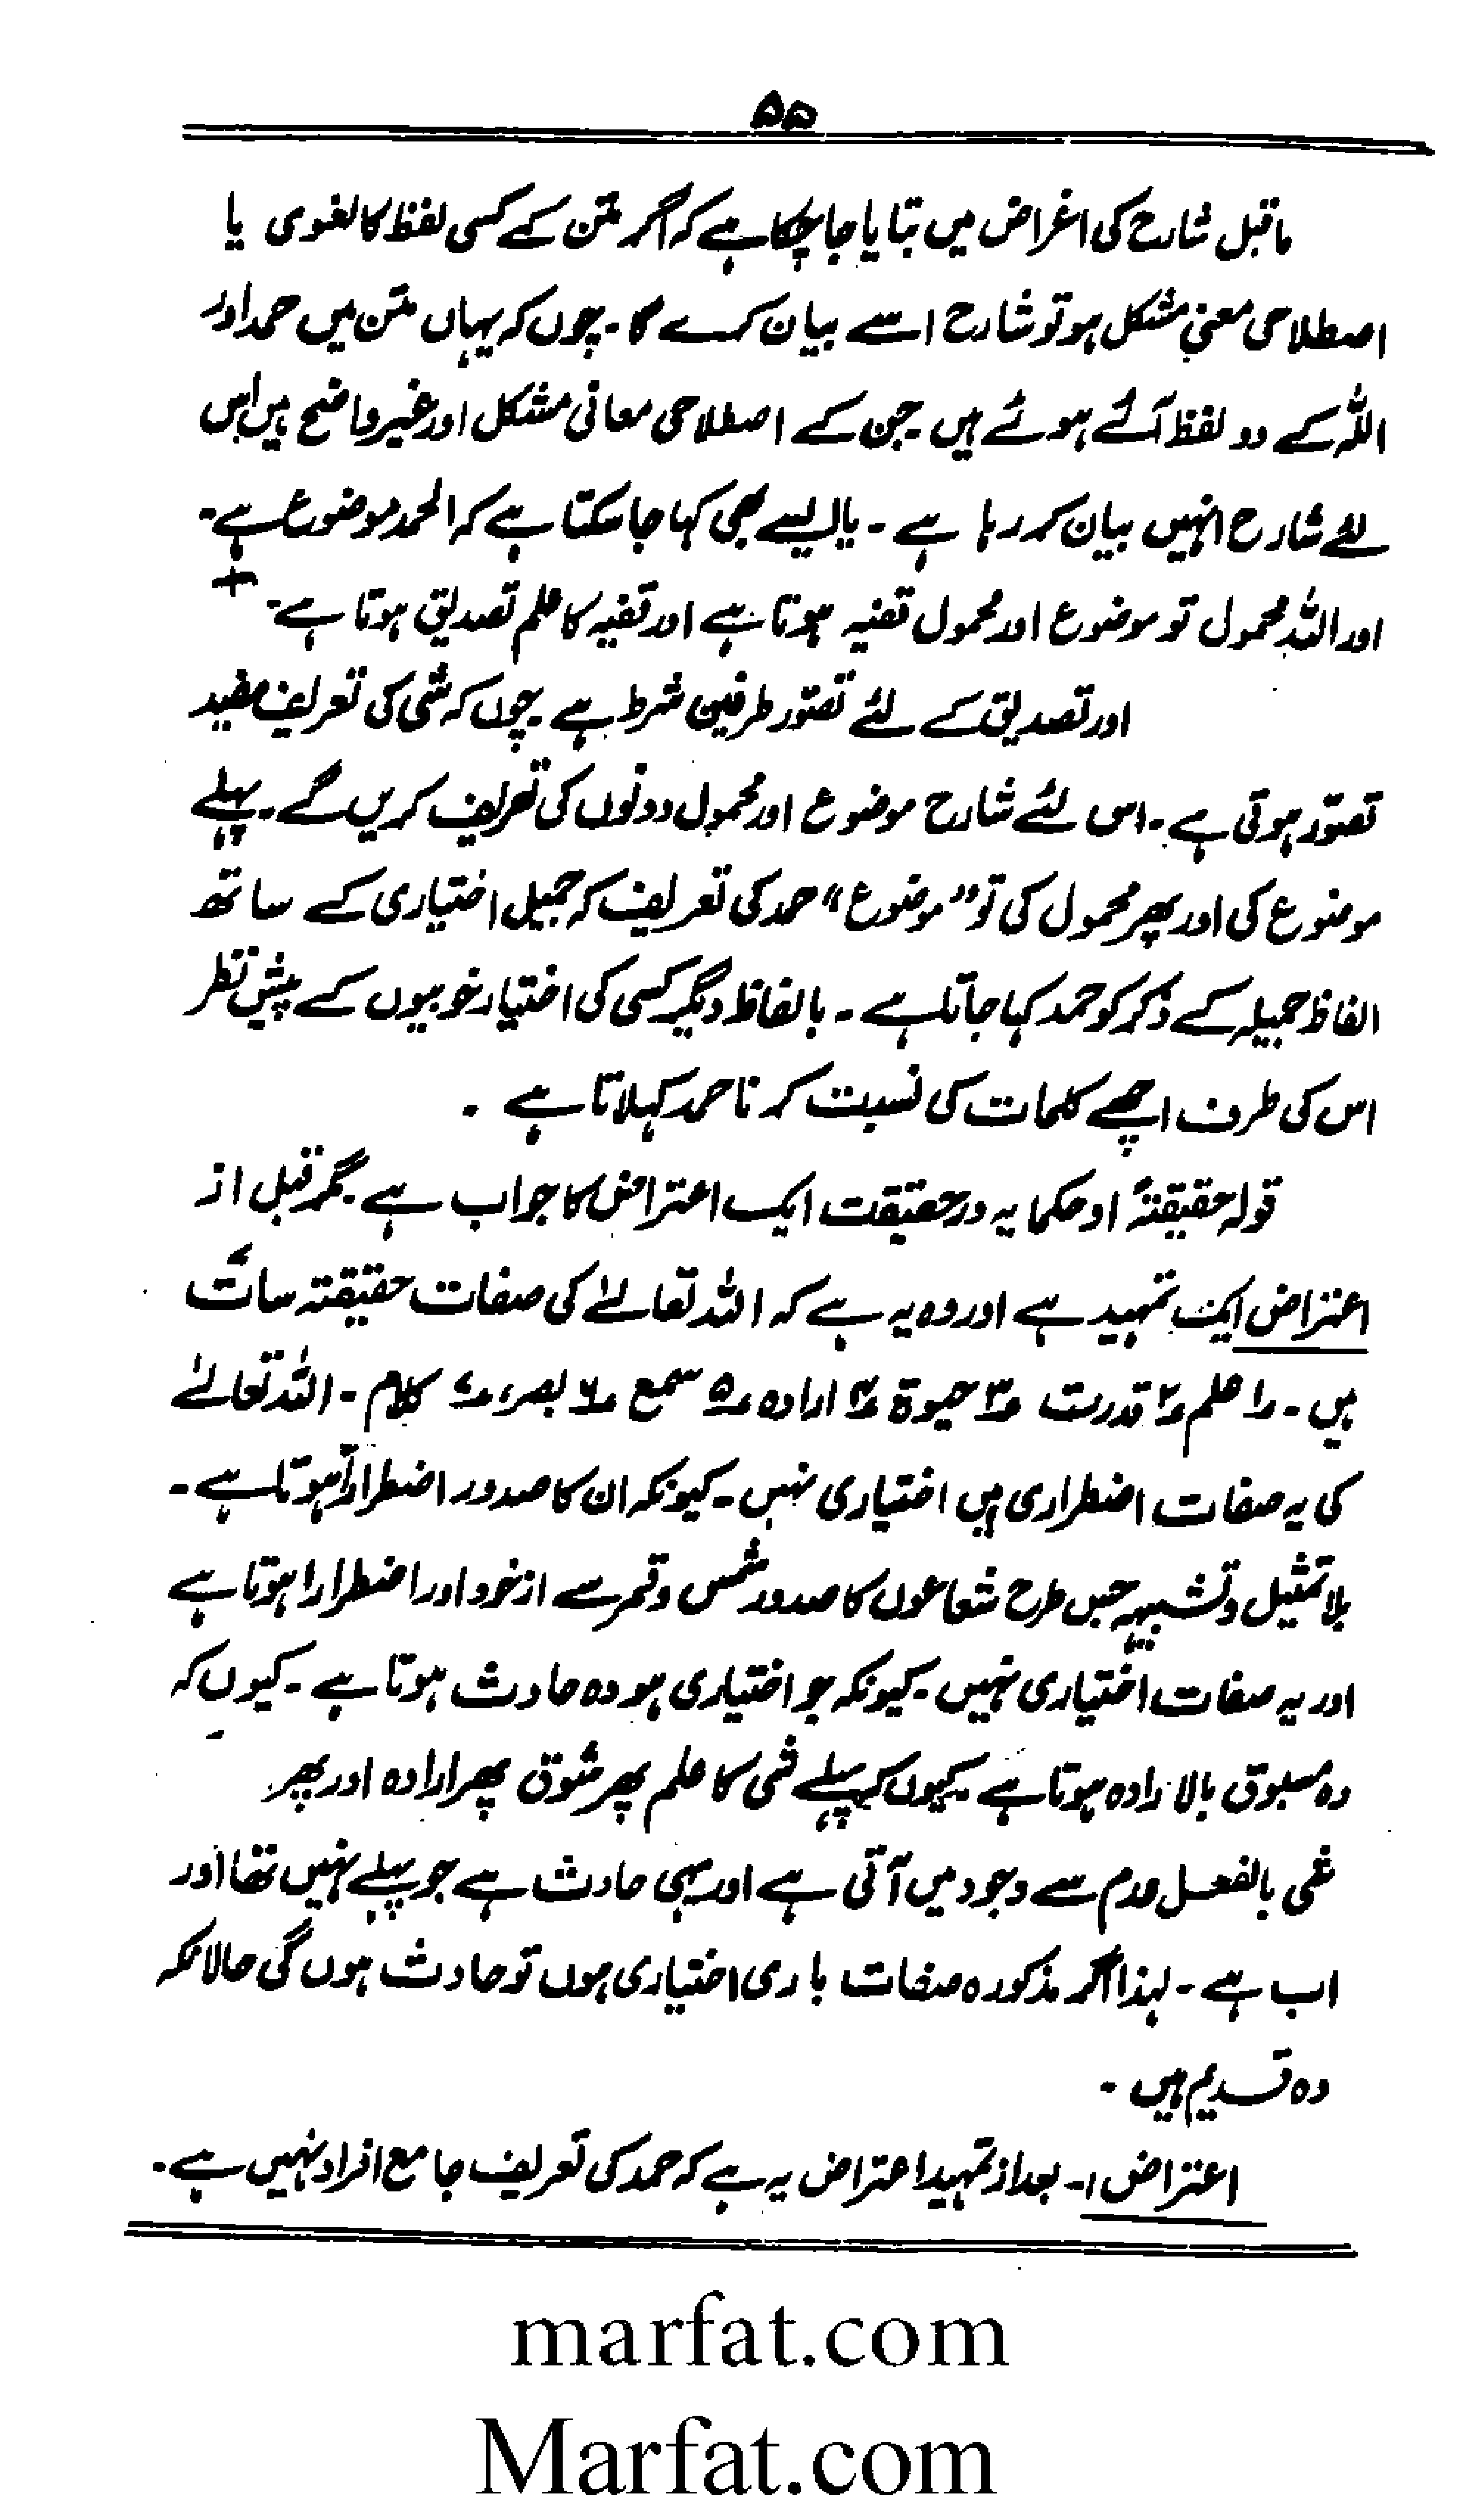 ۵۵
ماقبل شارح کی اغراض میں بتایا جا چکا ہے کہ اگر متن کے کسی لفظ کا لغوی یا
اصطلاحی معنیٰ مشکل ہو تو شارح اسے بیان کرے گا۔ چوں کہ یہاں متن میں حمد اور
اللہ کے دو لفظ آئے ہوئے ہیں۔ جن کے اصطلاحی معانی مشکل اور غیر واضح ہیں اس
لئے شارح انہیں بیان کر رہا ہے۔ یا ایسے بھی کہا جا سکتا ہے کہ الحمد موضوع ہے۔
اور اللہ محمول تو موضوع اور محمول قضیہ ہوتا ہے اور قضیہ کا علم تصدیق ہوتا ہے۔
اور تصدیق کے لئے تصوّر طرفین شرط ہے۔ چوں کہ شئی کی تعریف مفید
تصوّر ہوتی ہے۔ اس لئے شارح موضوع اور محمول دونوں کی تعریف کریں گے۔ پہلے
موضوع کی اور پھر محمول کی تو "موضوع" حمد کی تعریف کہ جمیل اختیاری کے ساتھ
الفاظ جمیلہ کے ذکر کو حمد کہا جاتا ہے۔ بالفاظ دیگر کسی کی اختیار خوبیوں کے پیش نظر
اس کی طرف اچھے کلمات کی نسبت کرنا حمد کہلاتا ہے۔
قولہ حقیقتہً او حکما یہ در حقیقت ایک اعتراض کا جواب ہے۔ مگر قبل از
اعتراض ایک تمہید ہے اور وہ یہ ہے کہ اللہ تعالےٰ کی صفات حقیقتہ سات
ہیں۔ ۱؎ علم ۲؎ قدرت ۳؎ حیوۃ ۴؎ ارادہ ۵؎ سمع ۶؎ بصر، ۷؎ کلام۔ اللہ تعالےٰ
کی یہ صفات اضطراری ہیں اختیاری نہیں۔ کیونکہ ان کا صدور اضطراراً ہوتا ہے۔
بلا تمثیل و تشبیہہ جس طرح شعاعوں کا صدور شمس و قمر سے از خود اور اضطرارا ہوتا ہے
اور یہ صفات اختیاری نہیں۔ کیونکہ جو اختیاری ہو وہ حادث ہوتا ہے۔ کیوں کہ
وہ مسبوق بالارادہ ہوتا ہے۔ کیوں کہ پہلے شی کا علم پھر شوق پھر ارادہ اور پھر
شی بالفعل عدم سے وجود میں آتی ہے اور یہی حادث ہے جو پہلے نہیں تھا اور
اب ہے۔ لہذا اگر مذکورہ صفات باری اختیاری ہوں تو حادث ہوں گی حالانکہ
وہ قدیم ہیں۔
اعتراض ۱۔ بعد از تمہید اعتراض یہ ہے کہ حمد کی تعریف جامع افراد نہیں ہے۔
marfat.com
Marfat.com